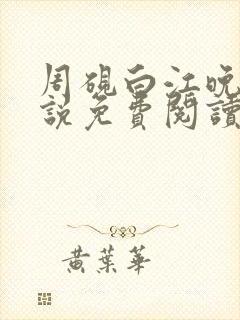 周硯白江晚
説免費閱讀
黃葉華